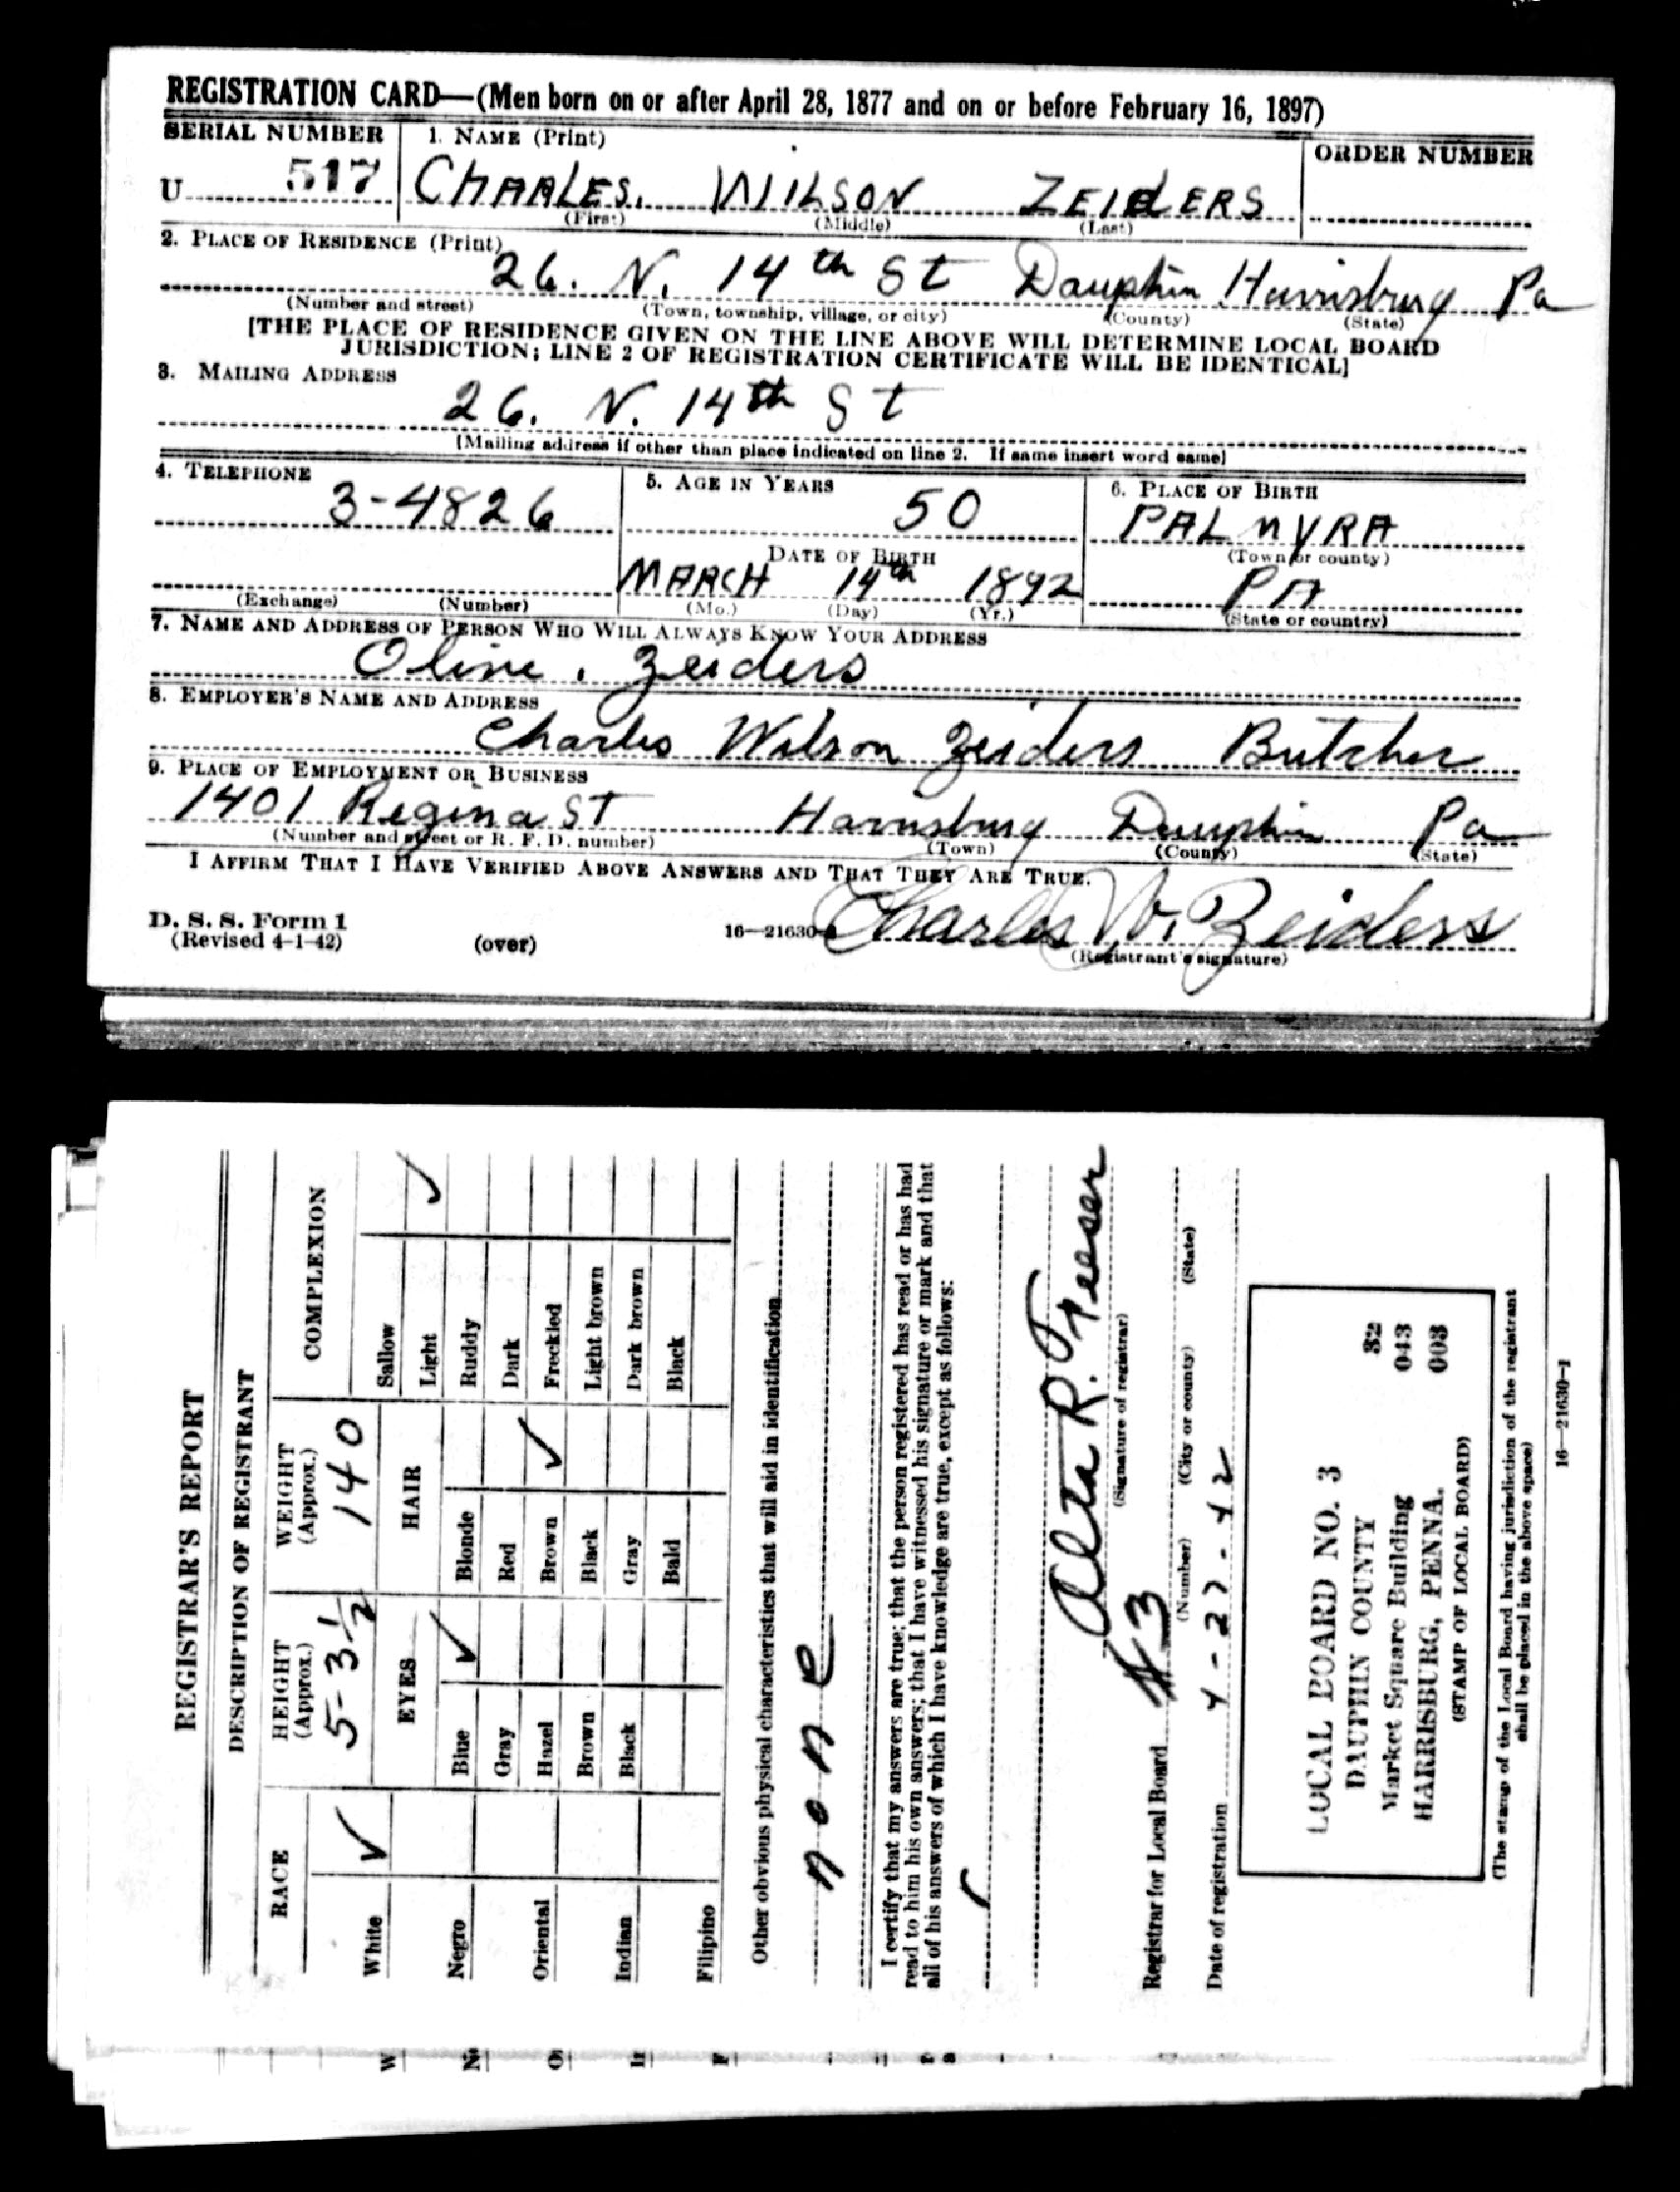 REGISTRATION CARD—(Men born on or after April 28, 1877 and on or before February 16, 1897)
SERIAL NUMBER 1. NAME (Print) ORDER NUMBER
U 517 CHARLES. WILSON ZEIDERS
(First) (Middle) (Last)
2. PLACE OF RESIDENCE (Print)
26. N. 14th St Dauphin Harrisburg Pa
(Number and street) (Town, township, village, or city) (County) (State)
[THE PLACE OF RESIDENCE GIVEN ON THE LINE ABOVE WILL DETERMINE LOCAL BOARD
JURISDICTION; LINE 2 OF REGISTRATION CERTIFICATE WILL BE IDENTICAL]
3. MAILING ADDRESS
26. N. 14th St
[Mailing address if other than place indicated on line 2. If same insert word same]
4. TELEPHONE 5. AGE IN YEARS 6. PLACE OF BIRTH
3-4826 50 PALMYRA
DATE OF BIRTH (Town or county)
MARCH 14th 1892 PA
(Exchange) (Number) (Mo.) (Day) (Yr.) (State or country)
7. NAME AND ADDRESS OF PERSON WHO WILL ALWAYS KNOW YOUR ADDRESS
Olive. Zeiders
8. EMPLOYER'S NAME AND ADDRESS
Charles Wilson Zeiders Butcher
9. PLACE OF EMPLOYMENT OR BUSINESS
1401 Regina ST Harrisburg Dauphin Pa
(Number and street or R. F. D. number) (Town) (County) (State)
I AFFIRM THAT I HAVE VERIFIED ABOVE ANSWERS AND THAT THEY ARE TRUE.
D. S. S. Form 1
(Revised 4-1-42) (over) 16—21630-1 Charles W. Zeiders
(Registrant's signature)
REGISTRAR'S REPORT
DESCRIPTION OF REGISTRANT
RACE HEIGHT (Approx.) WEIGHT (Approx.) COMPLEXION
5-3½ 140
White ✓ EYES HAIR Sallow
Light ✓
Negro Blue ✓ Blonde Ruddy
Gray Red Dark
Oriental Hazel Brown ✓ Freckled
Brown Black Light brown
Indian Black Gray Dark brown
Bald Black
Filipino
Other obvious physical characteristics that will aid in identification
none
I certify that my answers are true; that the person registered has read or has had
read to him his own answers; that I have witnessed his signature or mark and that
all of his answers of which I have knowledge are true, except as follows:
Alta R. Freeser
(Signature of registrar)
Registrar for Local Board #3
(Number) (City or county) (State)
Date of registration 4-27-42
LOCAL BOARD NO. 3 32
DAUPHIN COUNTY 043
Market Square Building 003
HARRISBURG, PENNA.
(STAMP OF LOCAL BOARD)
(The stamp of the Local Board having jurisdiction of the registrant
shall be placed in the above space)
16—21630-1